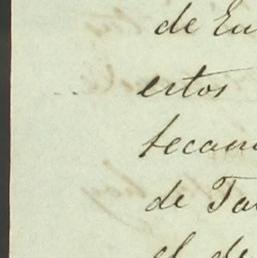 de Eu
estos
tecam
de Ta
el de